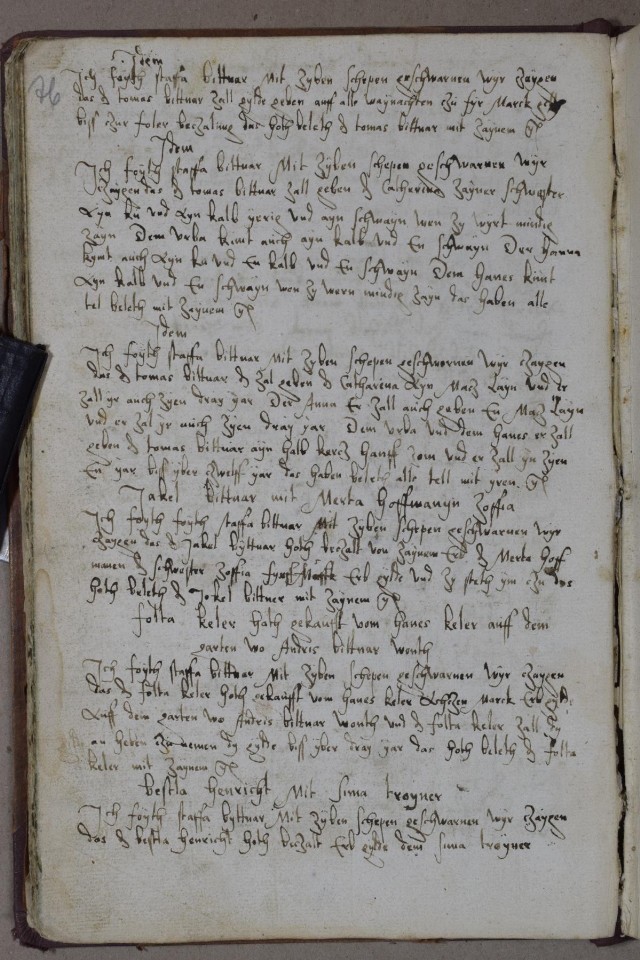 76
Idem
Ich foyth staffa bittnar Mit zyben schepen geschwarnen wyr zaygen
das d tomas bittnar zall gyldt geben auff alle waynachten czu fyr Marck
biss czur foler beczalung das hoth beleth d tomas bittnar mit zaynem
Idem
Ich foyth staffa bittnar Mit zyben schepen geschwarnen wyr
zaygen das d tomas bittnar zall geben d Catherina zayner schwester
Ayn ku vnd Ayn kalb yerig vnd ayn schwayn wen zy wyrt mindig
zayn Dem vrba kimt auch ayn kalb vnd En schwayn Der Hanna
kymt auch Ayn ku vnd En kalb vnd En schwayn Dem Hanes kimt
Ayn kalb vnd En schwayn wen zy wern mindig zayn das haben alle
tel beleth mit zaynem
Idem
Ich foyth staffa bittnar Mit zyben schepen geschwornen wyr czaygen
das d tomas bittnar d zal geben d Catharina Ayn Macz Layn vnd er
zall yr auch zyen dray yar Der Anna Er zall auch geben En Macz Layn
vnd er zal yr auch zyen dray yar Dem vrba vnd dem Hanes er zall
geben d tomas bittnar ayn halb kercz hanff zom vnd er zall yn zyen
En yar biss yber czwelff yar das haben beleth alle tell mit yren
Jakel bittnar mit Merta Hoffmanyn zoffia
Ich foyth foyth staffa bittnar Mit zyben schepen geschwarnen wyr
zaygen das d Jakel byttnar hoth beczalt von zaynem Erb d Merta Hoff
manen d schwester zoffia Erb gyldt vnd zy steth ym czu das
hoth beleth d Jokel bittner mit zaynem
folta keler hoth gekaufft vom Hanes keler auff dem
garten wo Andris bittnar wonth
Ich foyth staffa bittnar Mit zyben schepen geschwarnen wyr czaygen
das d folta keler hoth gekaufft vom Hanes keler Achczen Marck Erb
Auff dem garten wo Andris bittnar wonth vnd d folta keler zall
an heben zu nemen dy gyldt biss yber dray yar das hoth beleth d folta
keler mit zaynem
bestla Henricht Mit sima troyner
Ich foyth staffa byttnar Mit zyben schepen geschwarnen wyr czaygen
das d bestla Henricht hoth beczalt Erb gyldt dem sima troyner